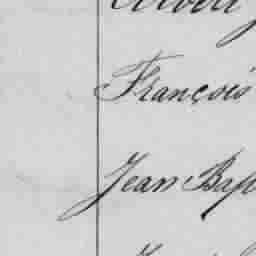 François
Jean Bap